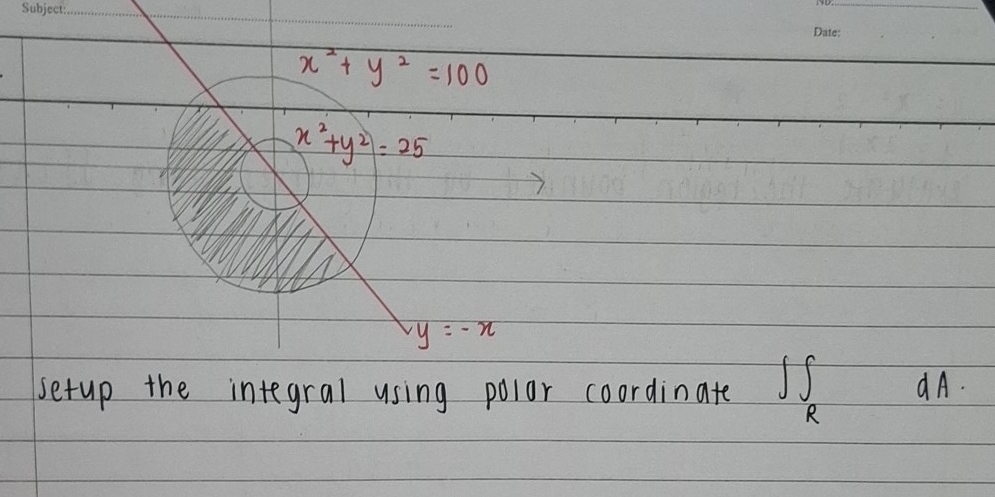 Subject:
No:
Date:
x² + y² = 100
x² + y² = 25
y = -x
setup the integral using polar coordinate ∫∫ dA.
R